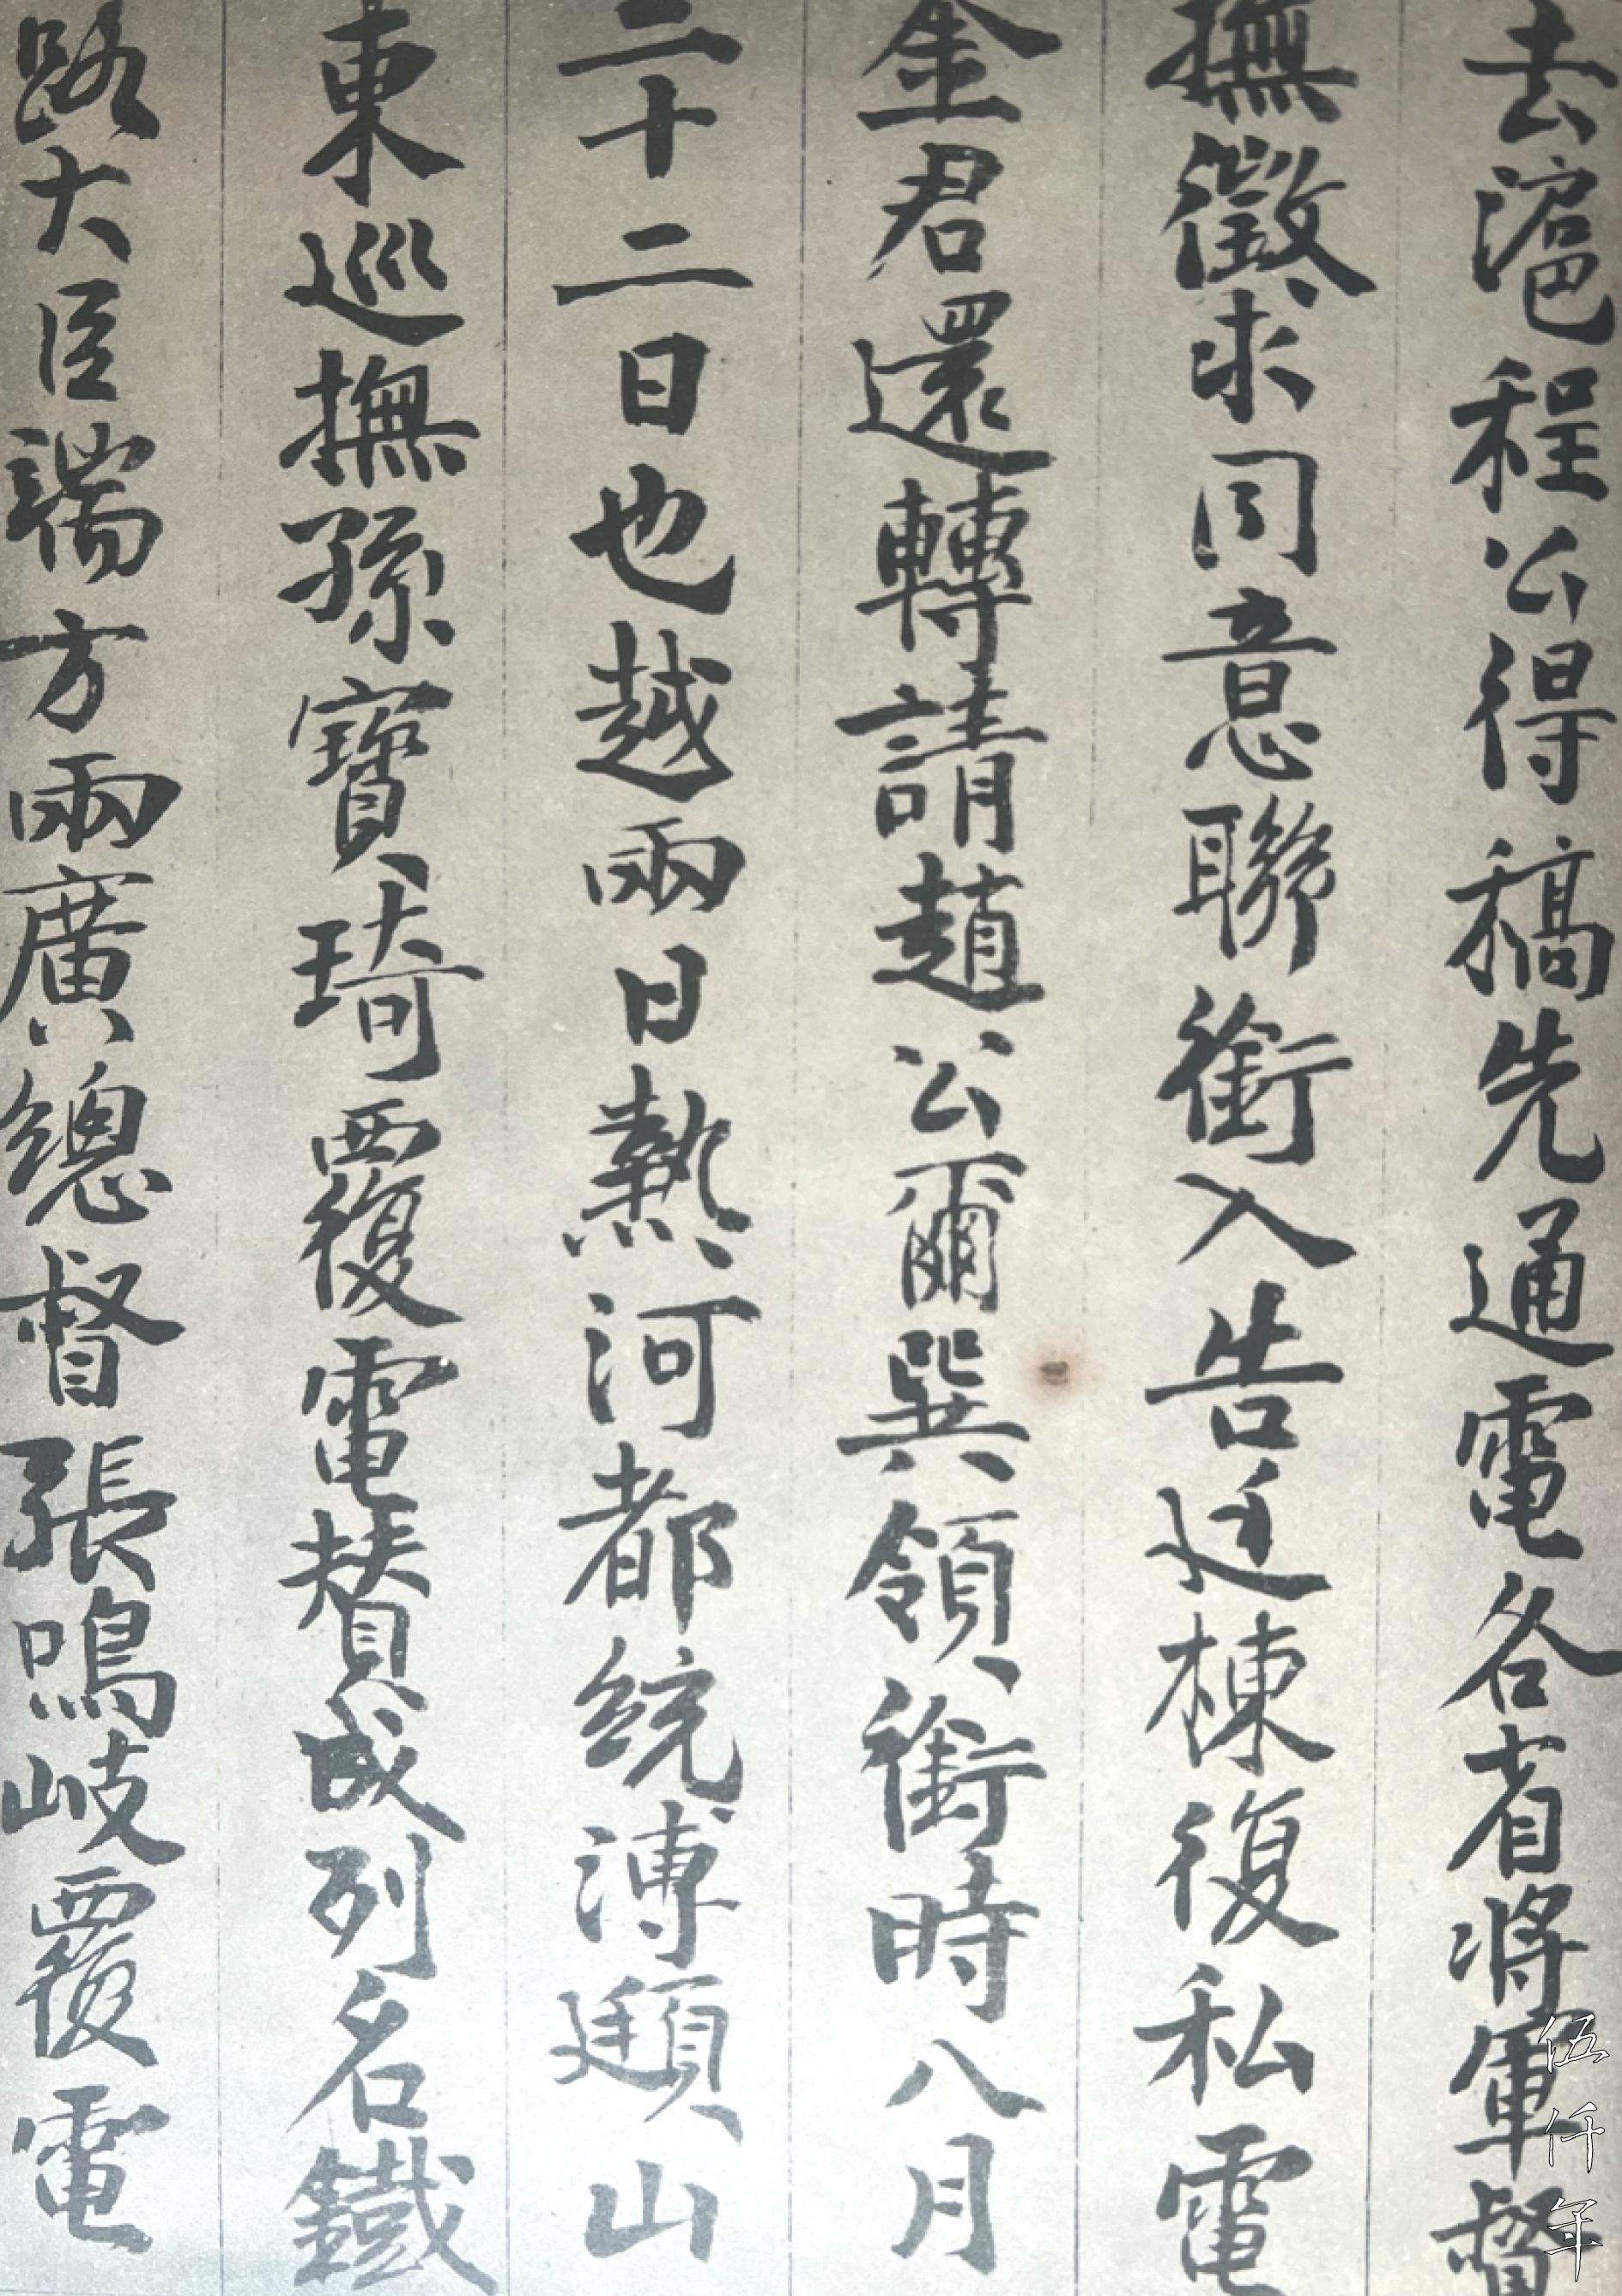 去滬程公得稿先通電各省將軍督
撫徵求同意聯銜入告廷棟復私電
金君還轉請趙公爾巽領銜時八月
二十二日也越兩日熱河都統溥頲山
東巡撫孫寶琦覆電贊成列名鐵
路大臣端方兩廣總督張鳴岐覆電
伍仟年